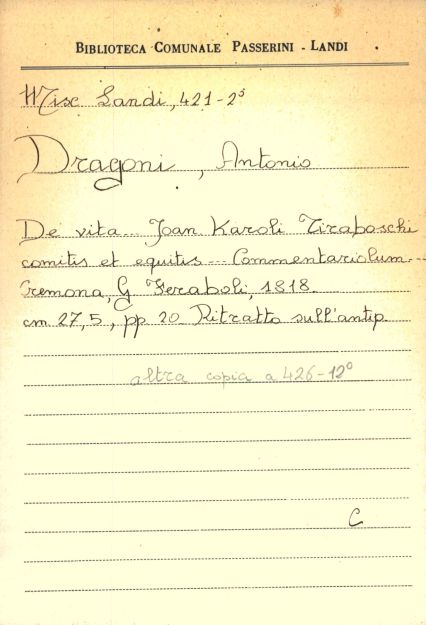 BIBLIOTECA COMUNALE PASSERINI - LANDI
Misc Landi, 421-2°
Dragoni, Antonio
De vita... Joan Karoli Tiraboschi
comitis et equitis... Commentariolum.-
Cremona, G Feraboli, 1818.
cm 27,5, pp 20 Ritratto sull'antip.
altra copia a 426-12°
C